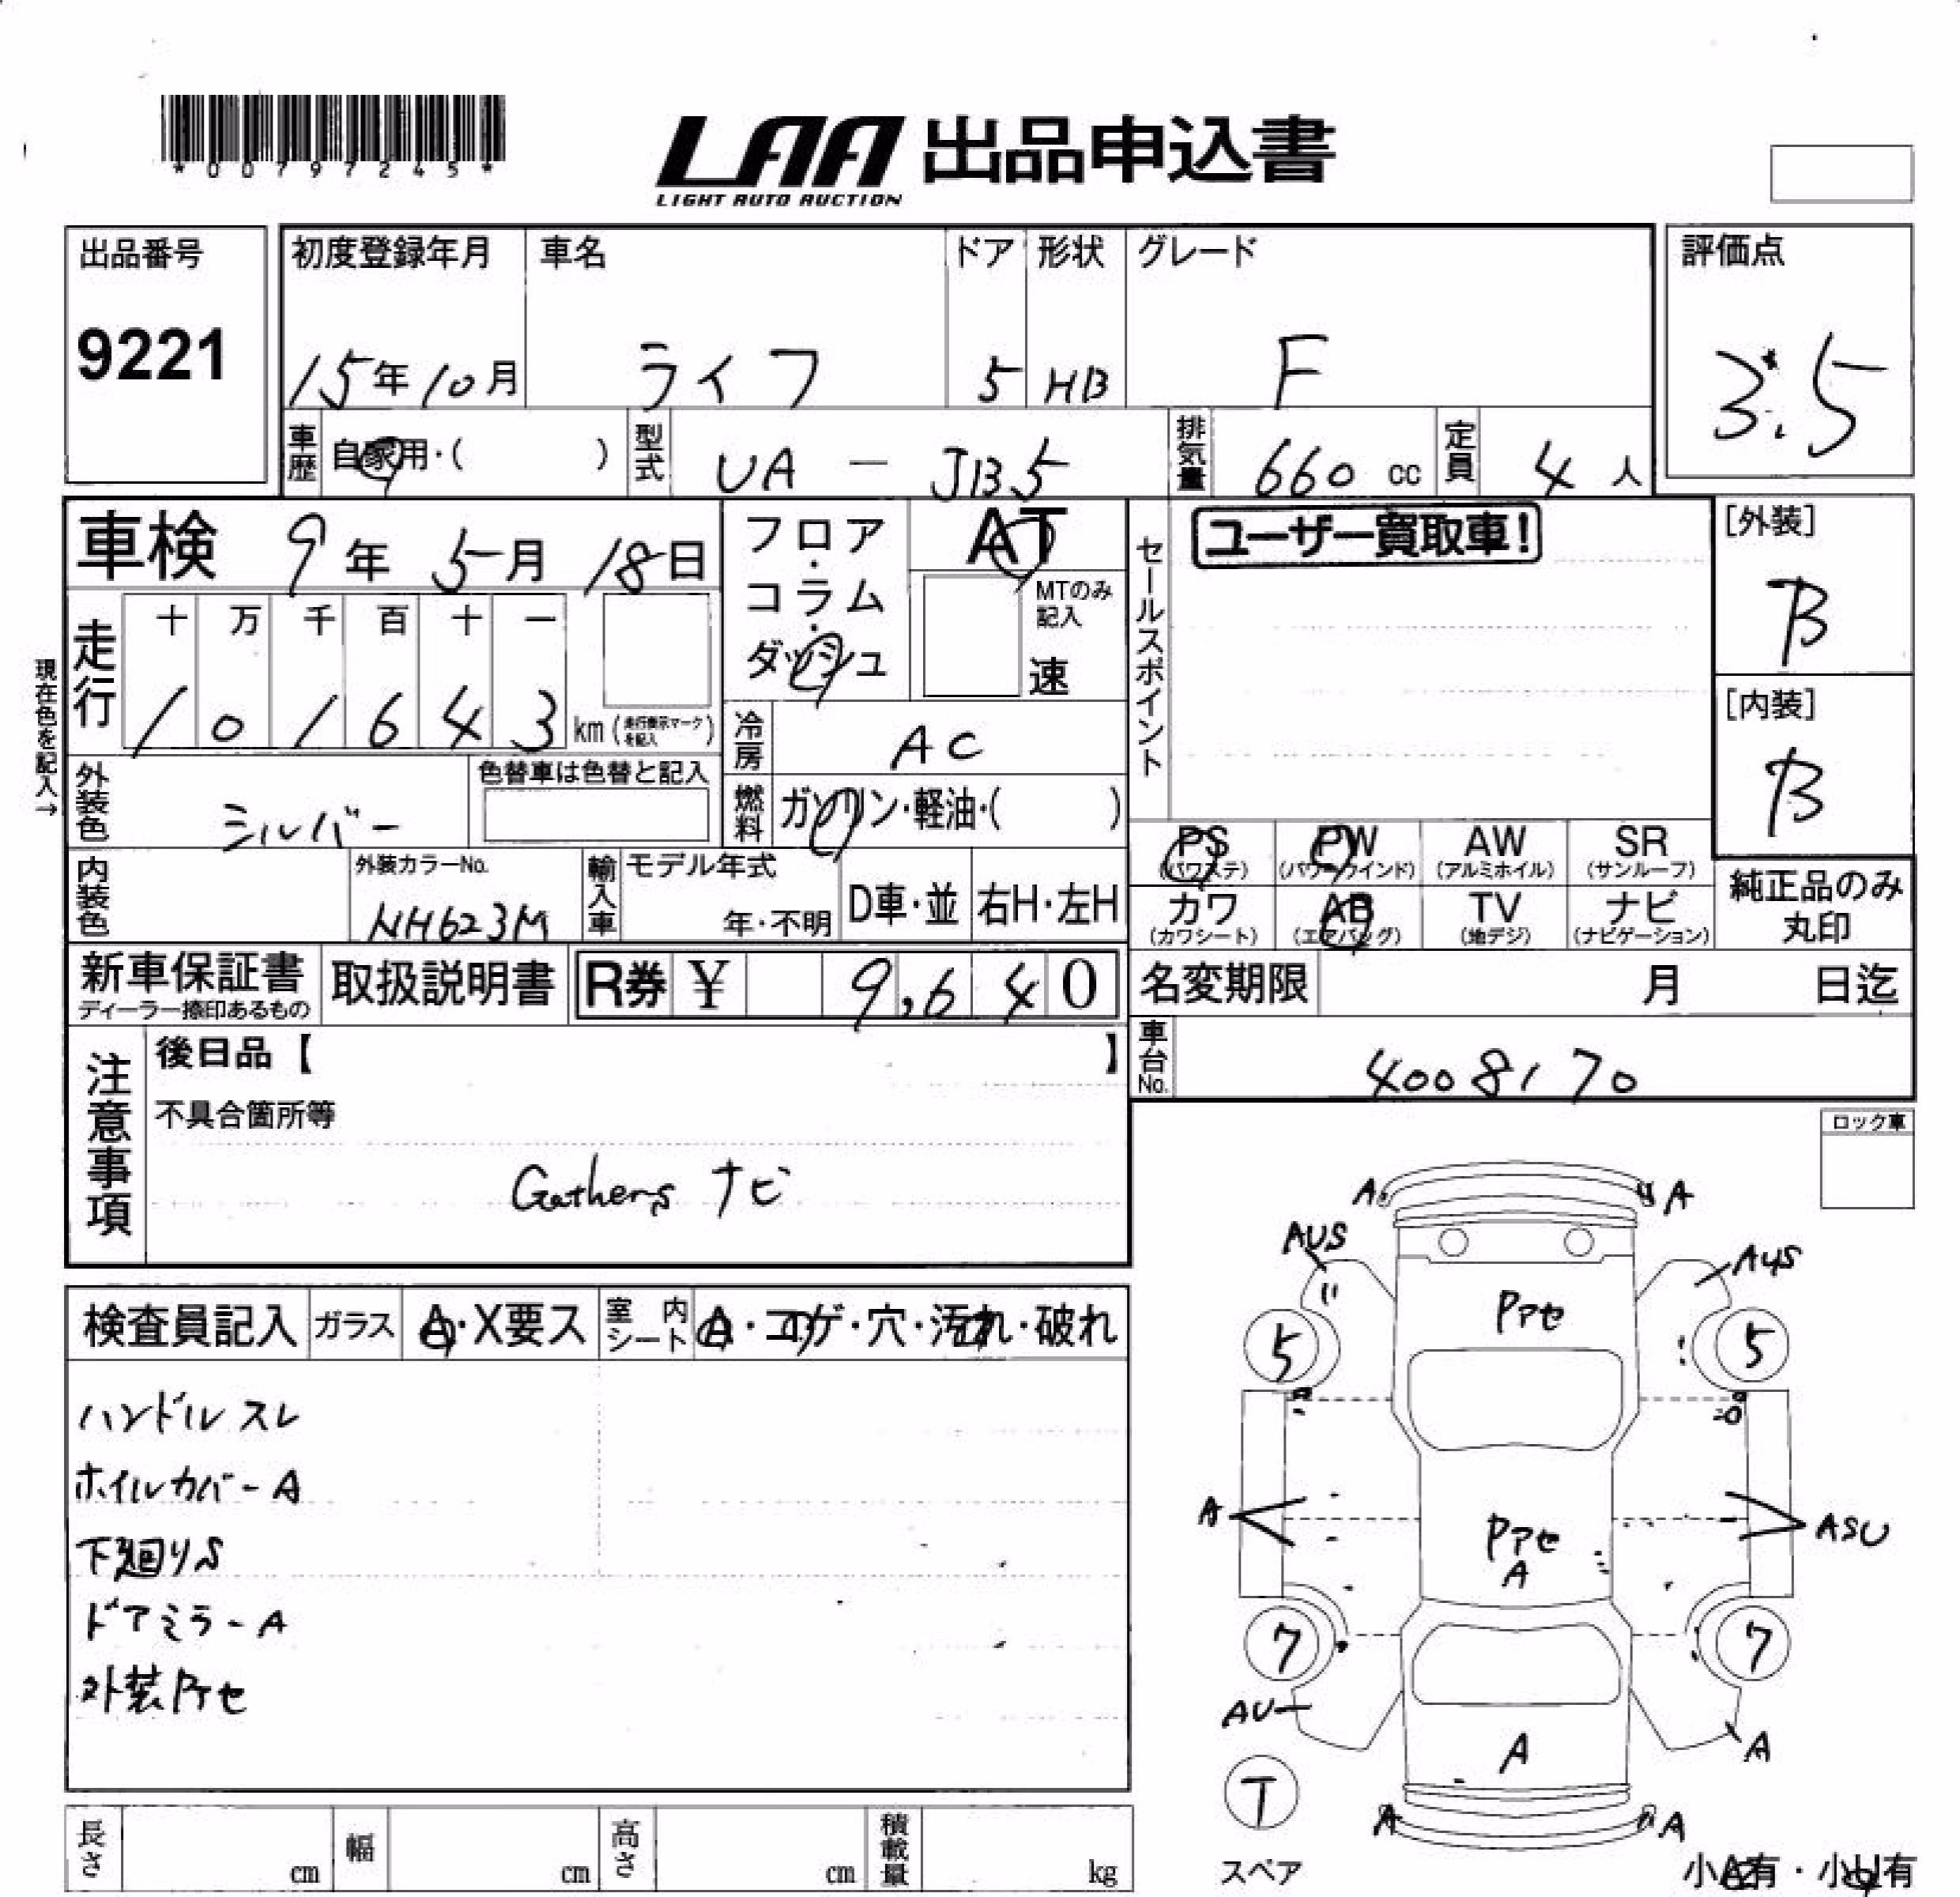 *00797245*
LAA 出品申込書
LIGHT AUTO AUCTION
出品番号
9221
初度登録年月
15年10月
車名
ライフ
ドア
5
形状
HB
グレード
F
評価点
3.5
車歴
自家用・( )
型式
UA - JB5
排気量
660 cc
定員
4 人
車検 9年 5月 18日
フロア・
コラム・
ダッシュ
AT
MTのみ
記入
速
セールスポイント
ユーザー買取車!
[外装]
B
[内装]
B
現在色を記入→
走行
十 万 千 百 十 一
1 0 1 6 4 3 km (走行表示マークを記入)
冷房
AC
燃料
ガソリン・軽油・( )
外装色
シルバー
色替車は色替と記入
PS
(パワステ)
PW
(パワーウインド)
AW
(アルミホイル)
SR
(サンルーフ)
カワ
(カワシート)
AB
(エアバッグ)
TV
(地デジ)
ナビ
(ナビゲーション)
純正品のみ
丸印
内装色
外装カラーNo.
NH623M
輸入車
モデル年式
年・不明
D車・並
右H・左H
新車保証書
ディーラー捺印あるもの
取扱説明書
R券 ¥ 9,640
名変期限 月 日迄
車台No.
4008170
注意事項
後日品【 】
不具合箇所等
Gathers ナビ
ロック車
検査員記入
ガラス
A・X要ス
室内シート
A・コゲ・穴・汚れ・破れ
ハンドルスレ
ホイルカバーA
下廻りS
ドアミラーA
外装Pアセ
A
A
AUS
AUS
Pアセ
5
5
A
ASU
Pアセ
A
7
7
AU
A
A
T
スペア
A
A
小A有・小U有
長さ cm
幅 cm
高さ cm
積載量 kg